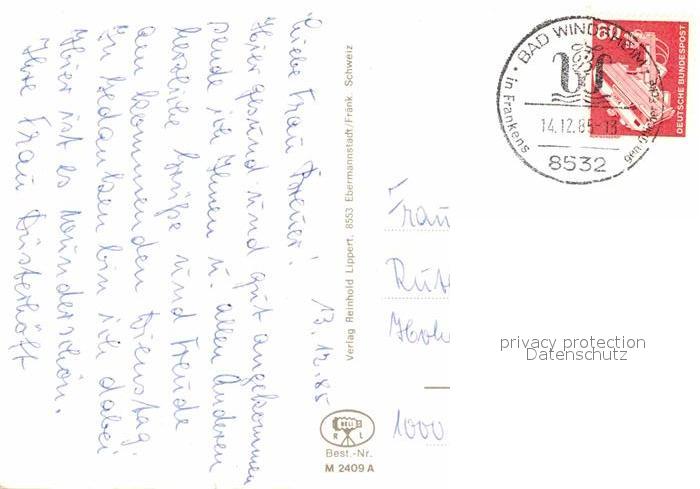 Liebe Frau Breuer! 13.12.85
Hier gesund und gut angekommen
sende ich Ihnen u. allen Anderen
herzliche Grüße und Freude
am kommenden Dienstag.
In Gedanken bin ich dabei
Hier ist es wunderschön.
Ihre Frau Düsterhöft
Verlag Reinhold Lippert, 8553 Ebermannstadt/Fränk. Schweiz
RELI
R L
Best.-Nr.
M 2409 A
BAD WINDSHEIM
in Franken
14.12.85-13
8532
DEUTSCHE BUNDESPOST
Frau
1000
privacy protection
Datenschutz